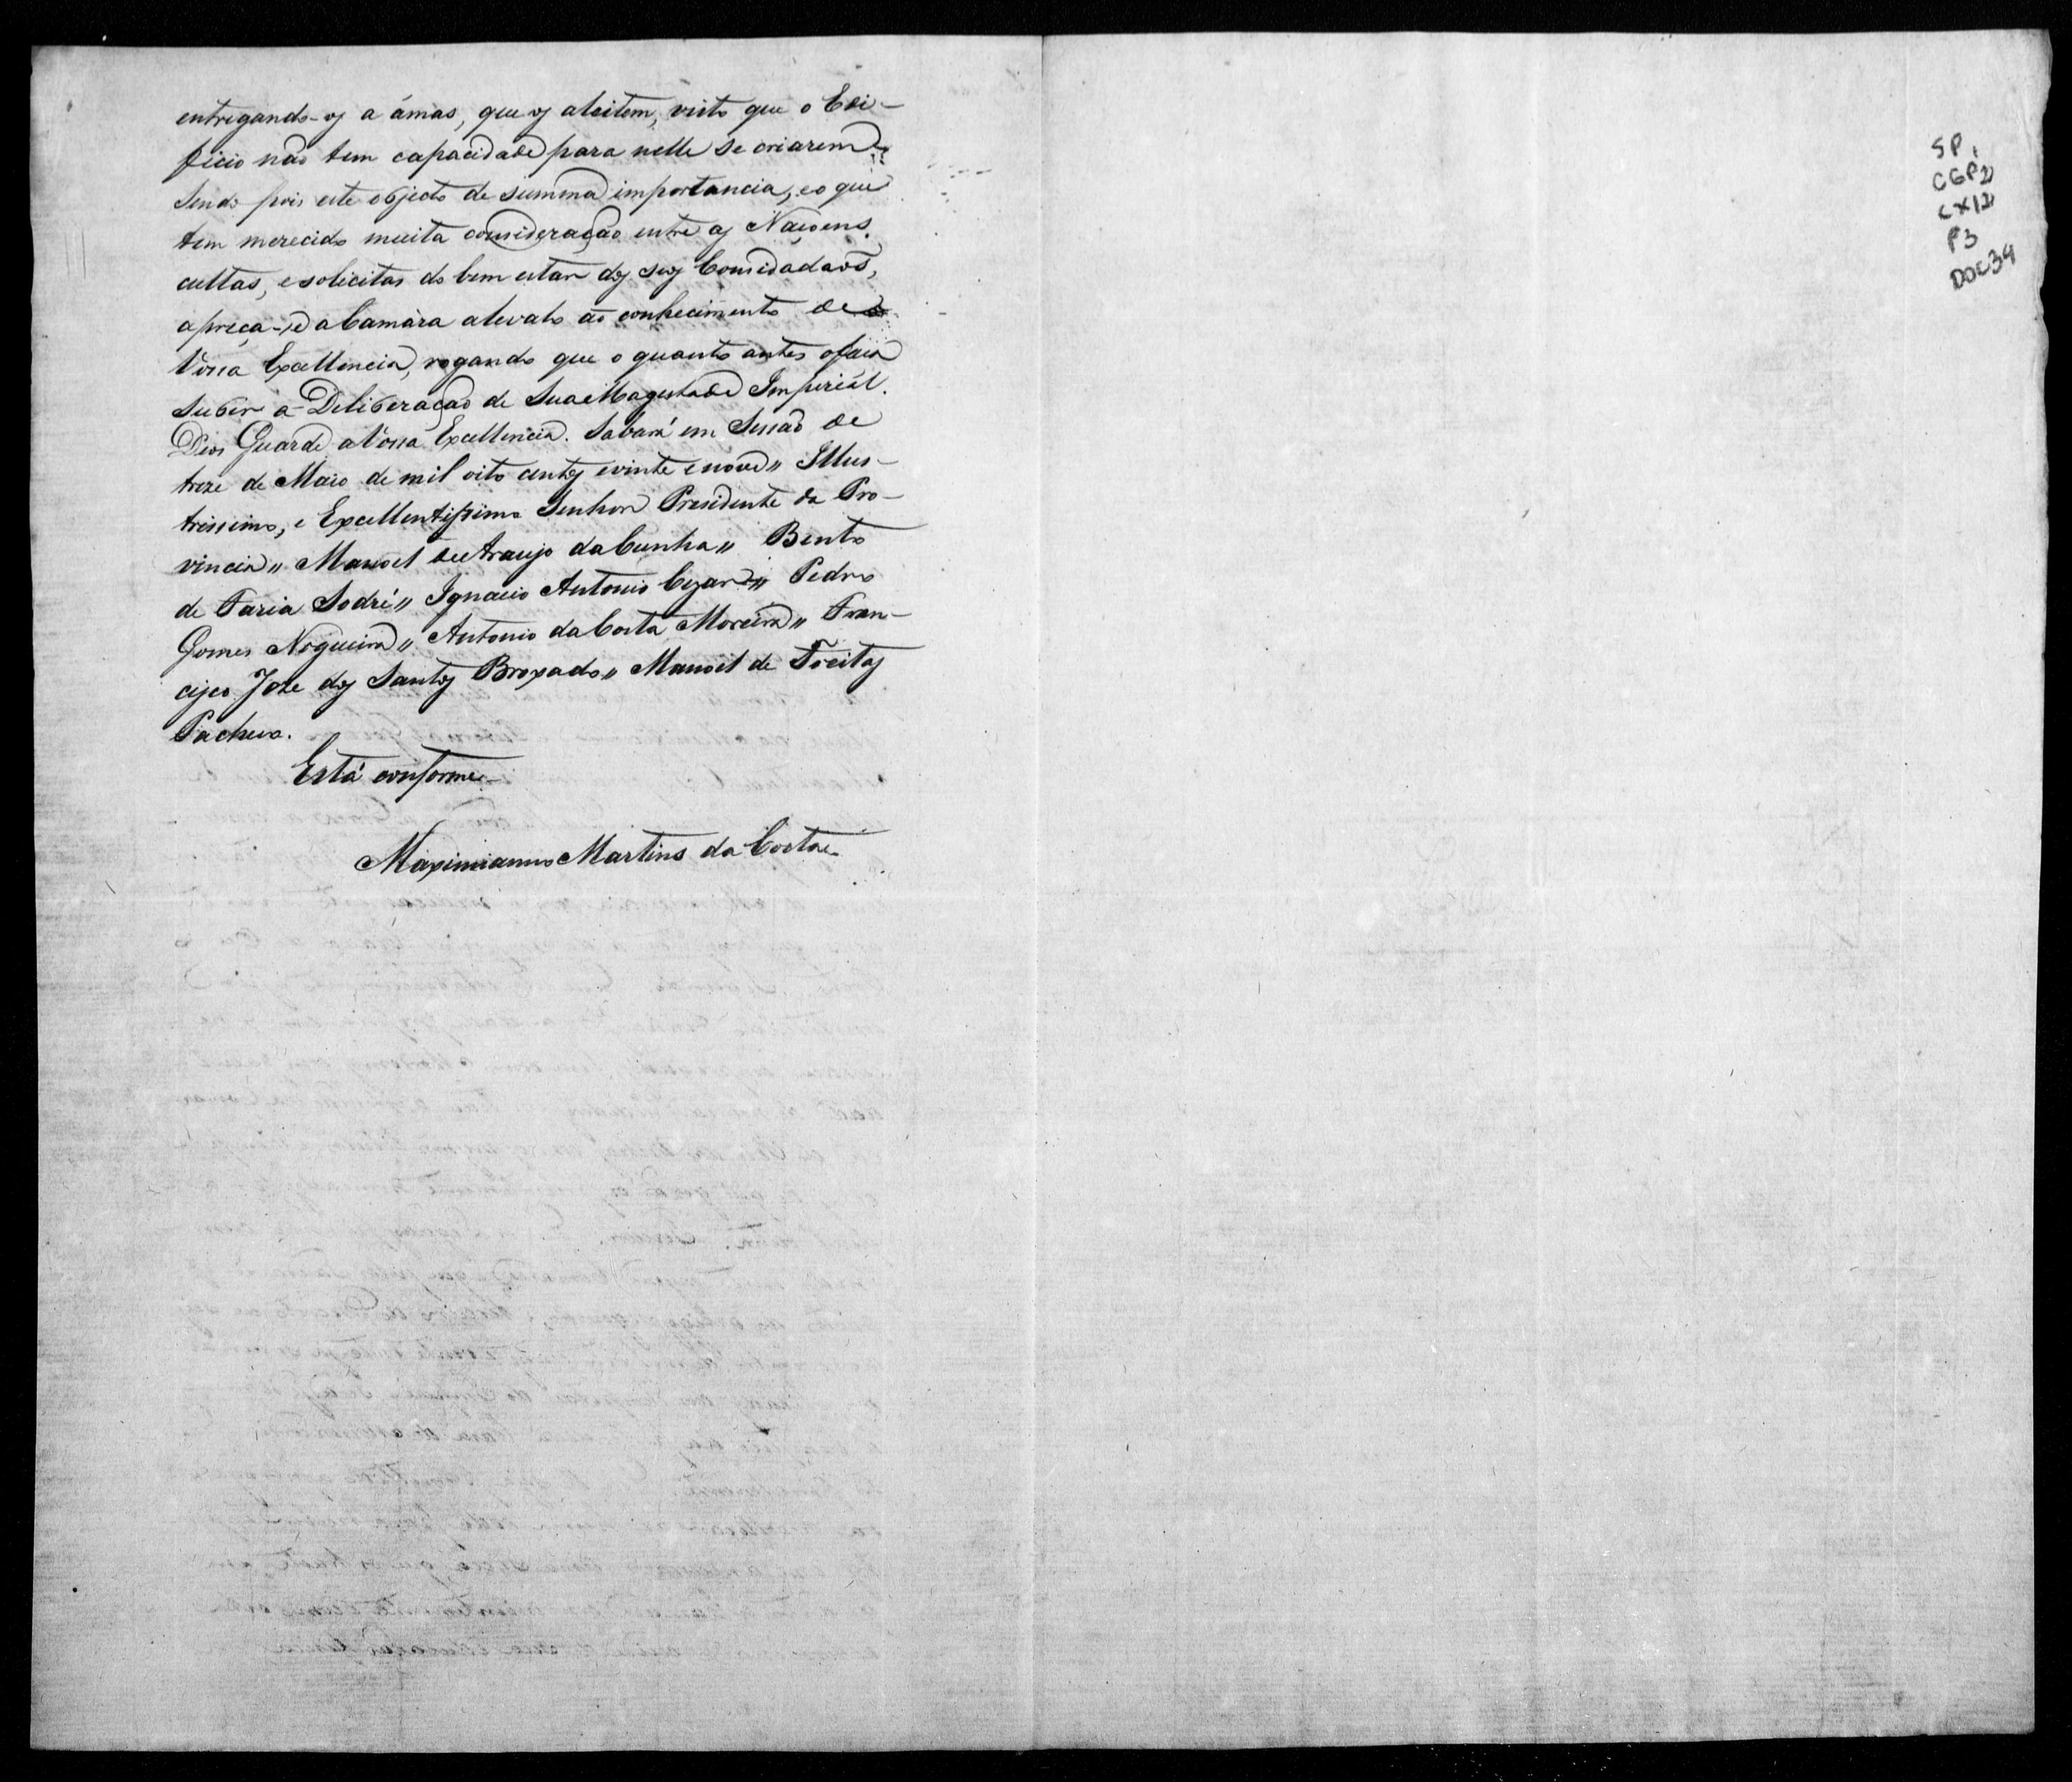 entregando-os a ámas, que os aleitem, visto que o Edi-
ficio não tem capacidade para nelle se criarem
Sendo pois este objecto de summa importancia, e o que
tem merecido muita consideração entre as Naçoens
cultas, e solicitas do bem estar dos seus Comcidadaõs,
apreça-se a Camàra aleva-lo ao conhecimento de
Vossa Excellencia, rogando que o quanto antes o faça
subir a Deliberação de Sua Magestade Imperiàl.
Deos Guarde a Vossa Excellencia. Sabará em Sessaõ de
treze de Maio de mil oito centos e vinte e nove,, Illus-
trissimo, e Excellentissimo Senhor Presidente da Pro-
vincia,, Manoel de Araujo da Cunha,, Bento
de Faria Sodré,, Ignacio Antonio Cezar,, Pedro
Gomes Nogueira,, Antonio da Costa Moreira,, Fran-
cisco Joze dos Santos Broxado,, Manoel de Freitas
Pacheco.
Está conforme
Maximianno Martins da Costa
SP,
CGP2
CX12
P3
DOC34